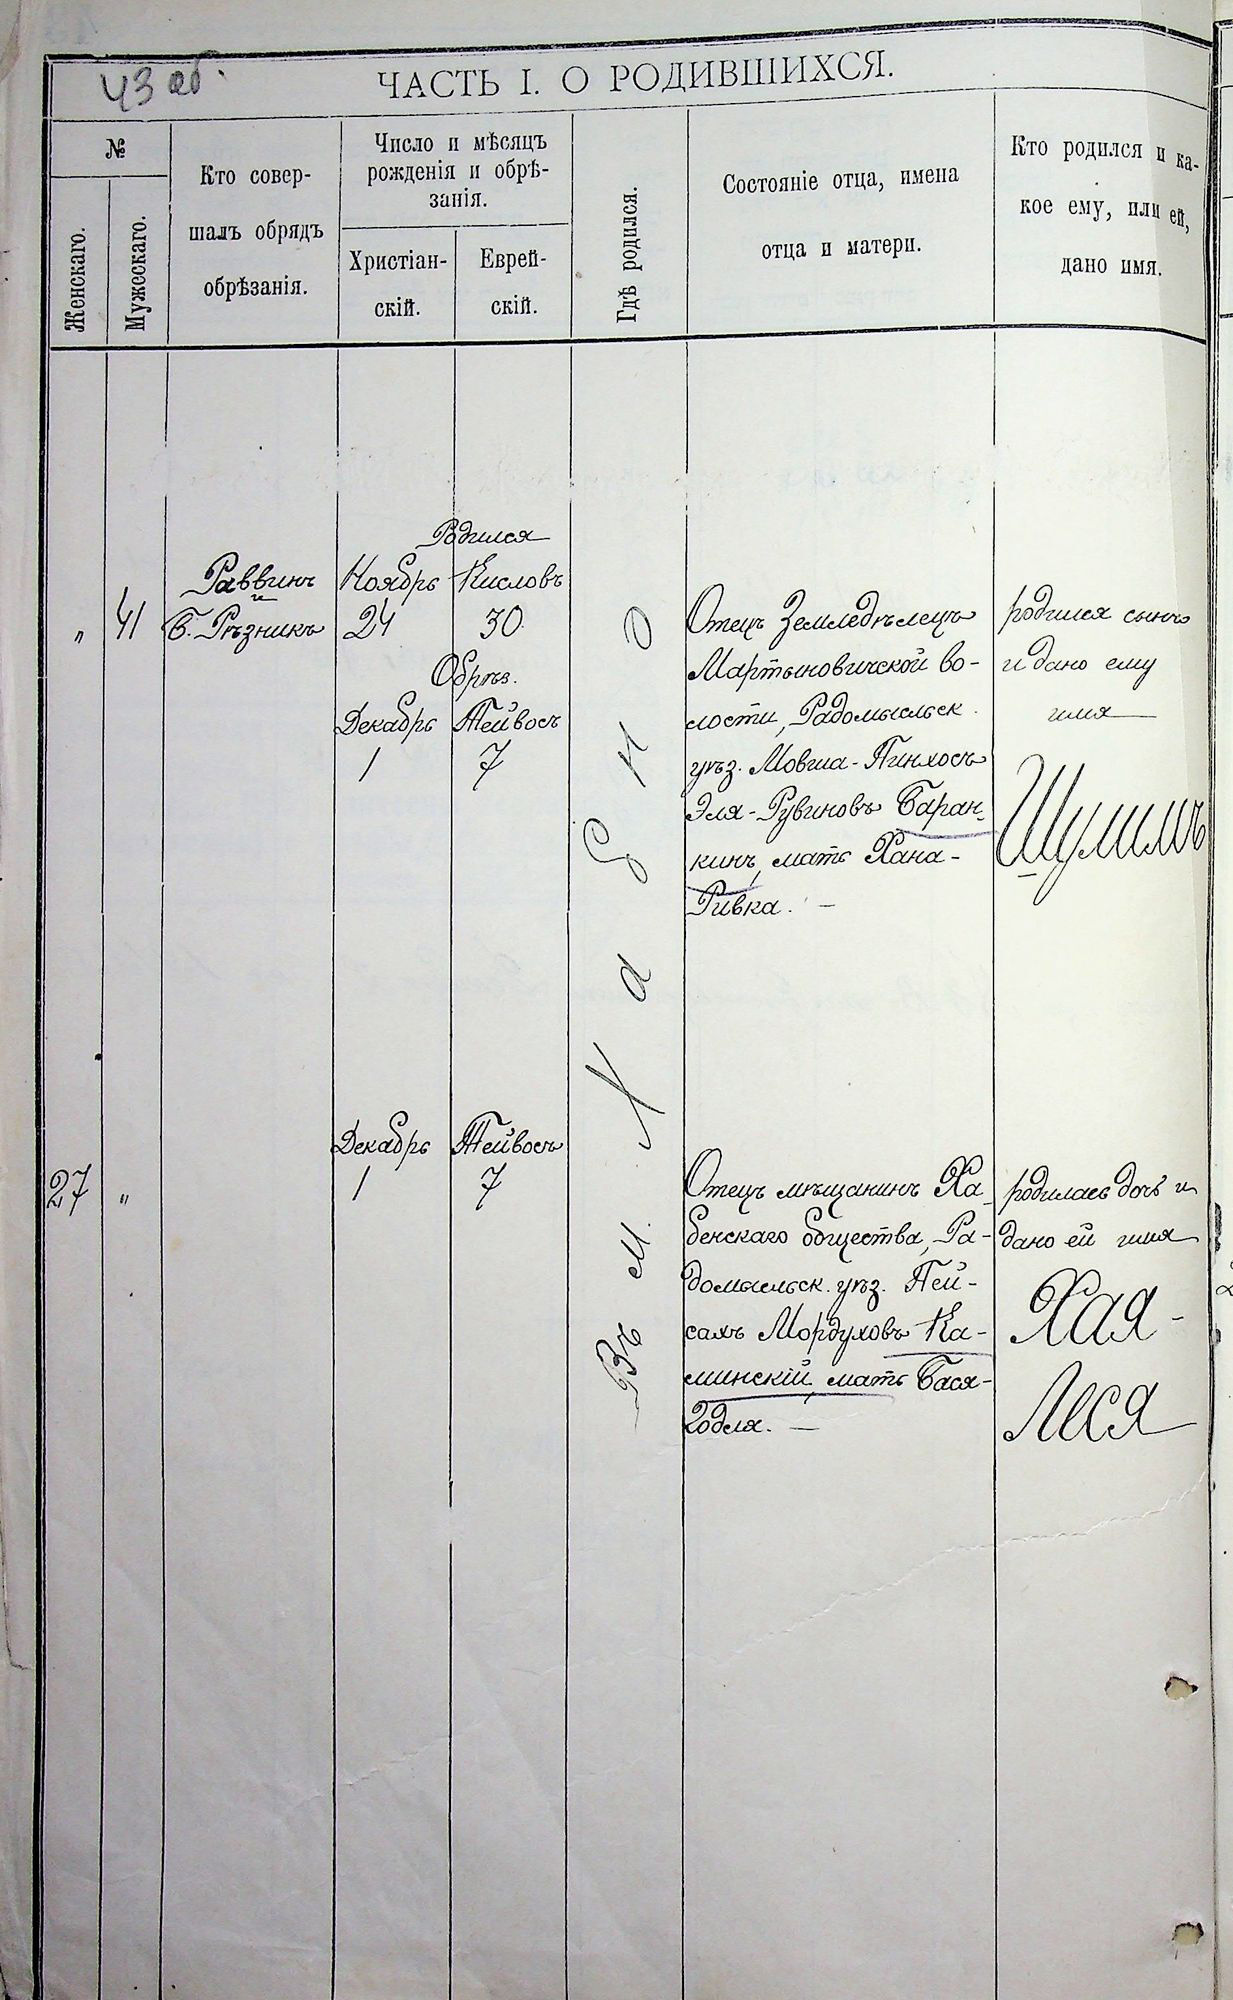 43 об.
ЧАСТЬ I. О РОДИВШИХСЯ.
№
Женскаго.
Мужескаго.
Кто совер-
шалъ обрядъ
обрѣзанія.
Число и мѣсяцъ
рожденія и обрѣ-
занія.
Христіан-
скій.
Еврей-
скій.
Гдѣ родился.
Состояніе отца, имена
отца и матери.
Кто родился и ка-
кое ему, или ей,
дано имя.
"
41
Раввинъ
и
Б. Рѣзникъ
Родился
Ноябрь Кисловъ
24 30
Обрѣз.
Декабрь Тейвосъ
1 7
Въ м. Хабно
Отецъ Земледѣлецъ
Мартыновичской во-
лости, Радомысльск.
уѣз. Мовша-Пинхосъ
Эля-Рувиновъ Баран-
кинъ, мать Хана-
Ривка. —
родился сынъ
и дано ему
имя
Шулимъ
27
"
Декабрь Тейвосъ
1 7
Отецъ мѣщанинъ Ха-
бенскаго общества, Ра-
домысльск. уѣз. Пей-
сахъ Мордуховъ Ка-
минскій, мать Бася-
Годля. —
родилась дочь и
дано ей имя
Хая-
Леся